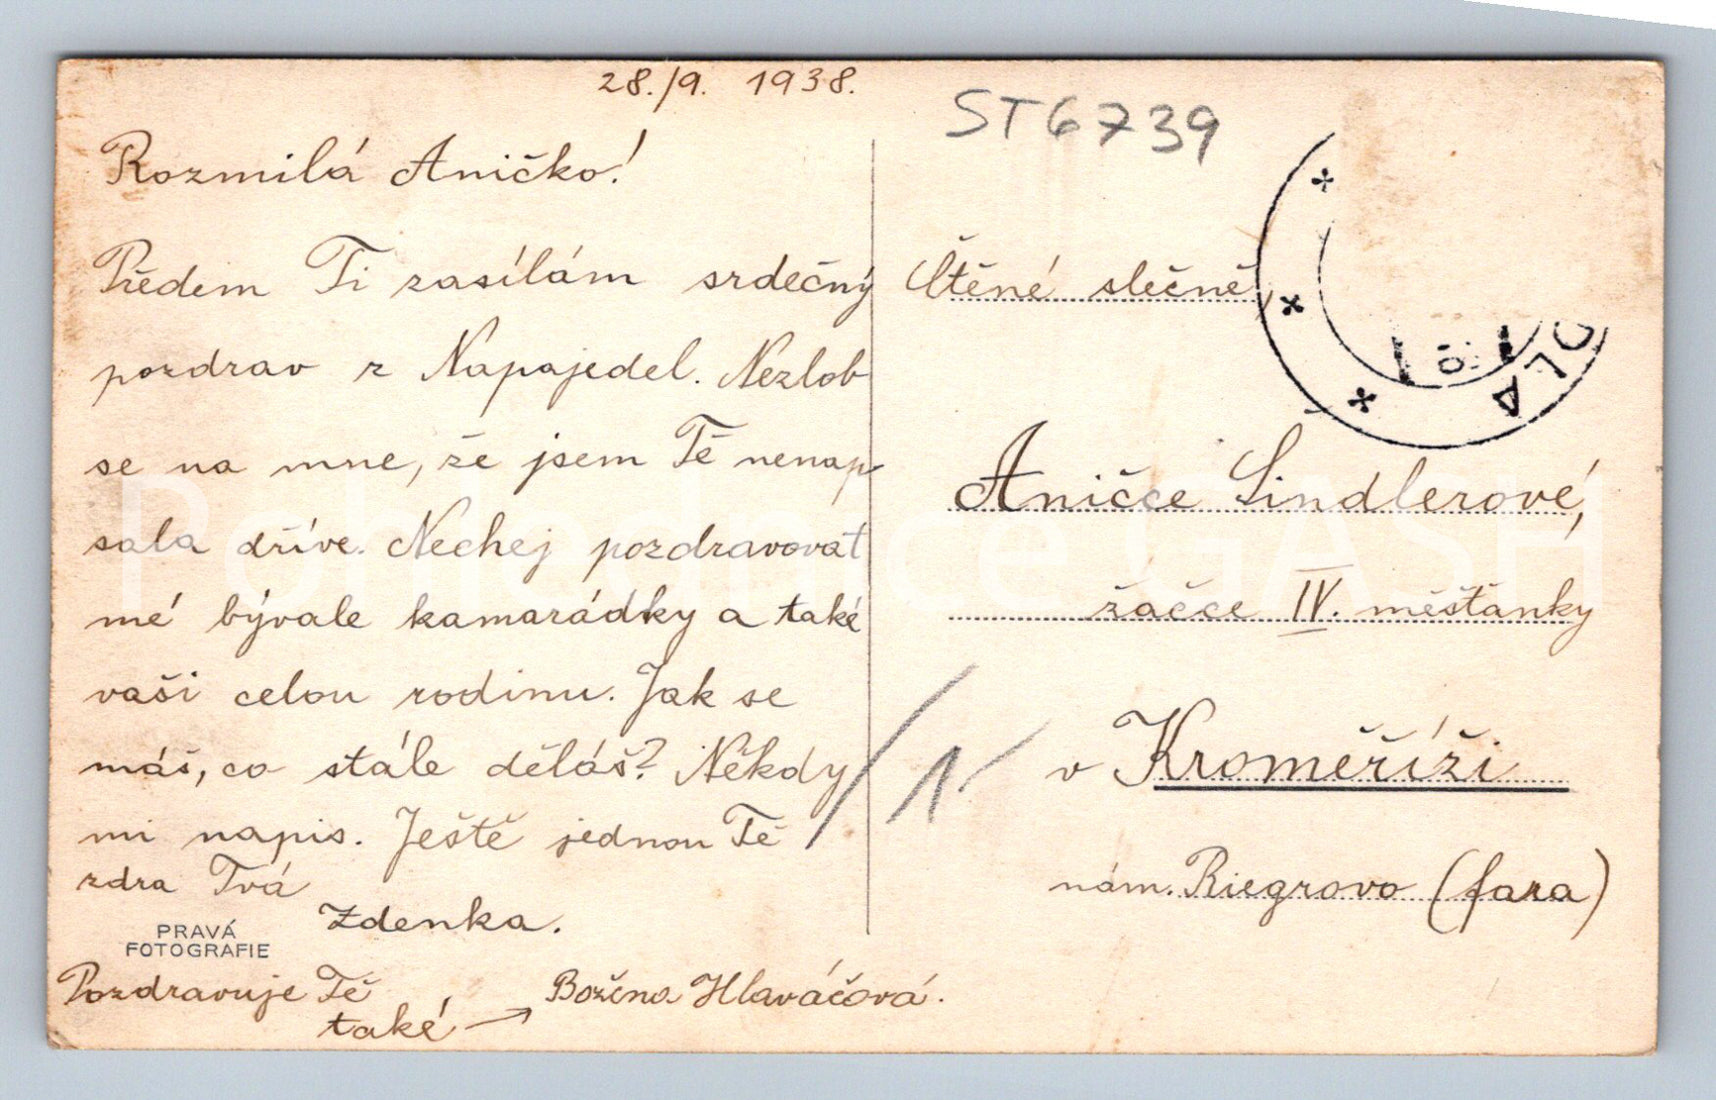 28./9. 1938.
Rozmilá Aničko!
Předem Ti zasílám srdečný
pozdrav z Napajedel. Nezlob
se na mne, že jsem Tě nenap
sala dříve. Nechej pozdravovat
mé bývale kamarádky a také
vaši celou rodinu. Jak se
máš, co stále děláš? Někdy
mi napis. Ještě jednou Tě
zdra Tvá
Zdenka.
PRAVÁ
FOTOGRAFIE
Pozdravuje Tě
také → Božena Hlaváčová.
ST6739
Ctěné slečně,
Aničce Šindlerové,
žačce IV. měšťanky
v Kroměříži
nám. Riegrovo (fara)
Pohlednice GASH